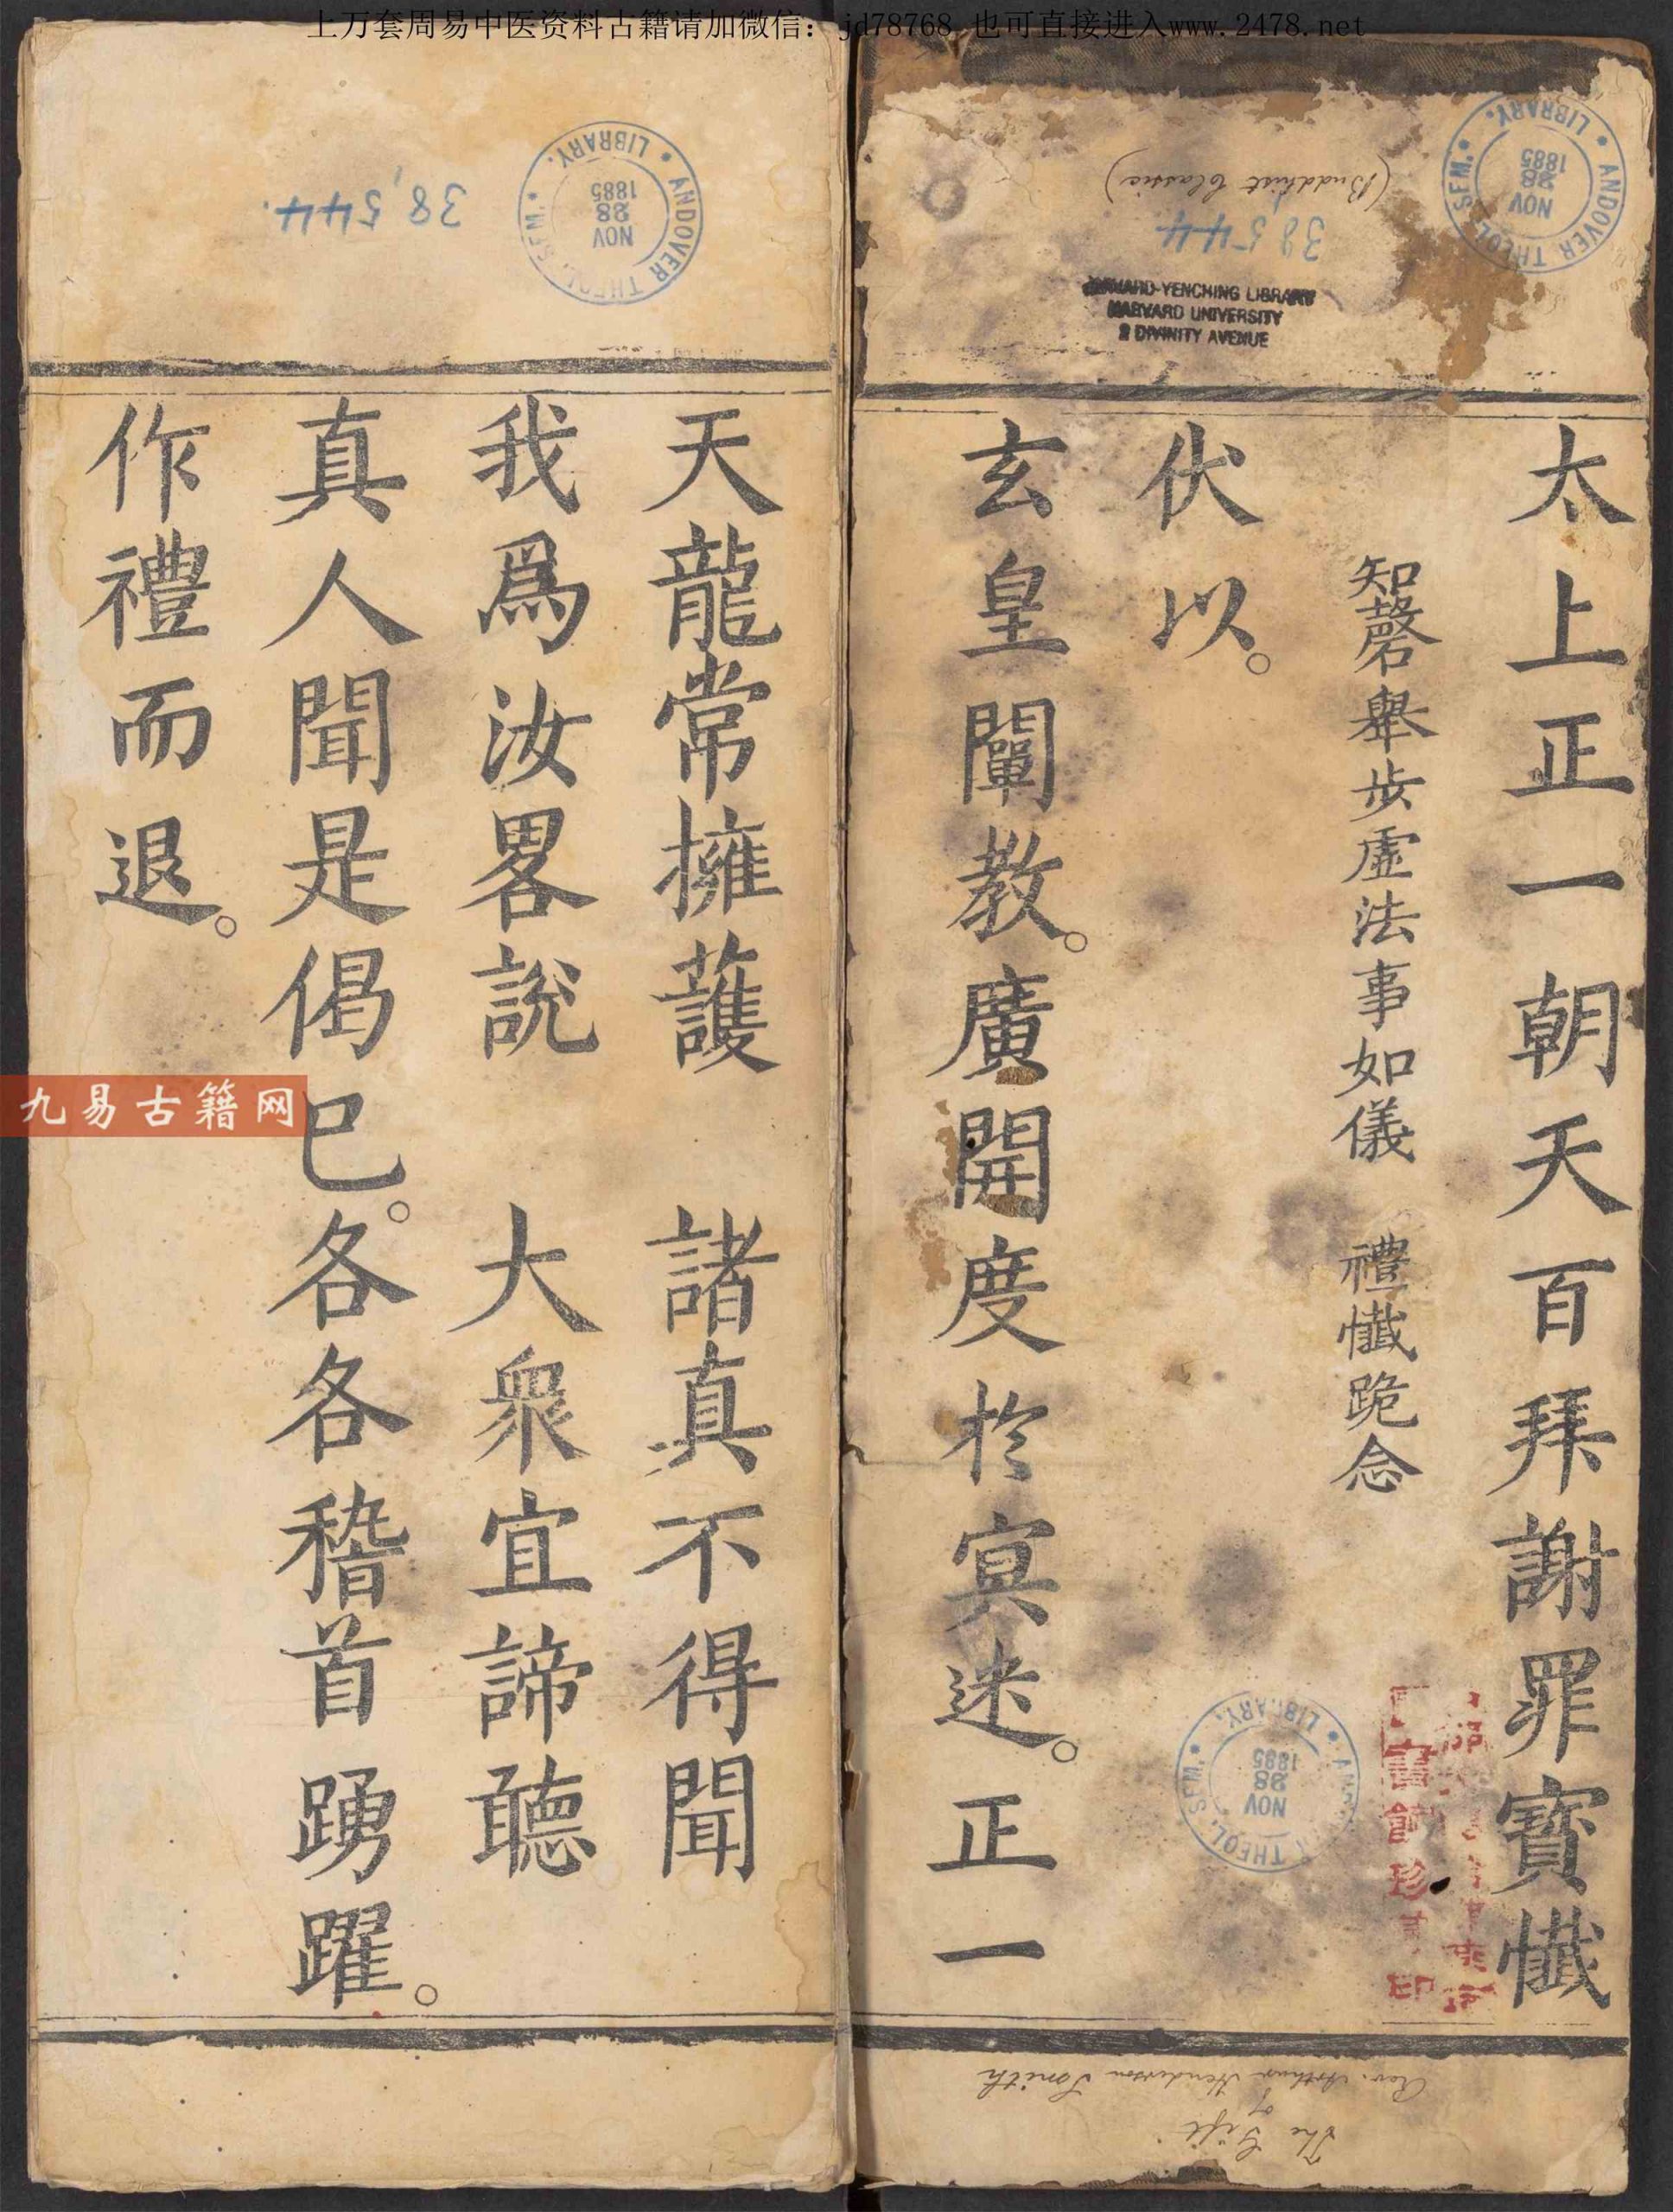 上万套周易中医资料古籍请加微信：jd78768 也可直接进入www.2478.net
太上正一朝天百拜謝罪寶懺
知磬舉步虛法事如儀 禮懺跪念
伏以。
玄皇闡教。廣開度於冥迷。正一
天龍常擁護 諸真不得聞
我爲汝畧說 大衆宜諦聽
真人聞是偈已。各各稽首踴躍。
作禮而退。
九易古籍网
ANDOVER THEOL. SEM. LIBRARY.
NOV
28
1885
(Buddhist Classic)
38,544
HARVARD-YENCHING LIBRARY
HARVARD UNIVERSITY
2 DIVINITY AVENUE
ANDOVER THEOL. SEM. LIBRARY.
NOV
28
1885
38,544.
ANDOVER THEOL. SEM. LIBRARY.
NOV
28
1885
The Gift
of
Rev. Arthur Henderson Smith